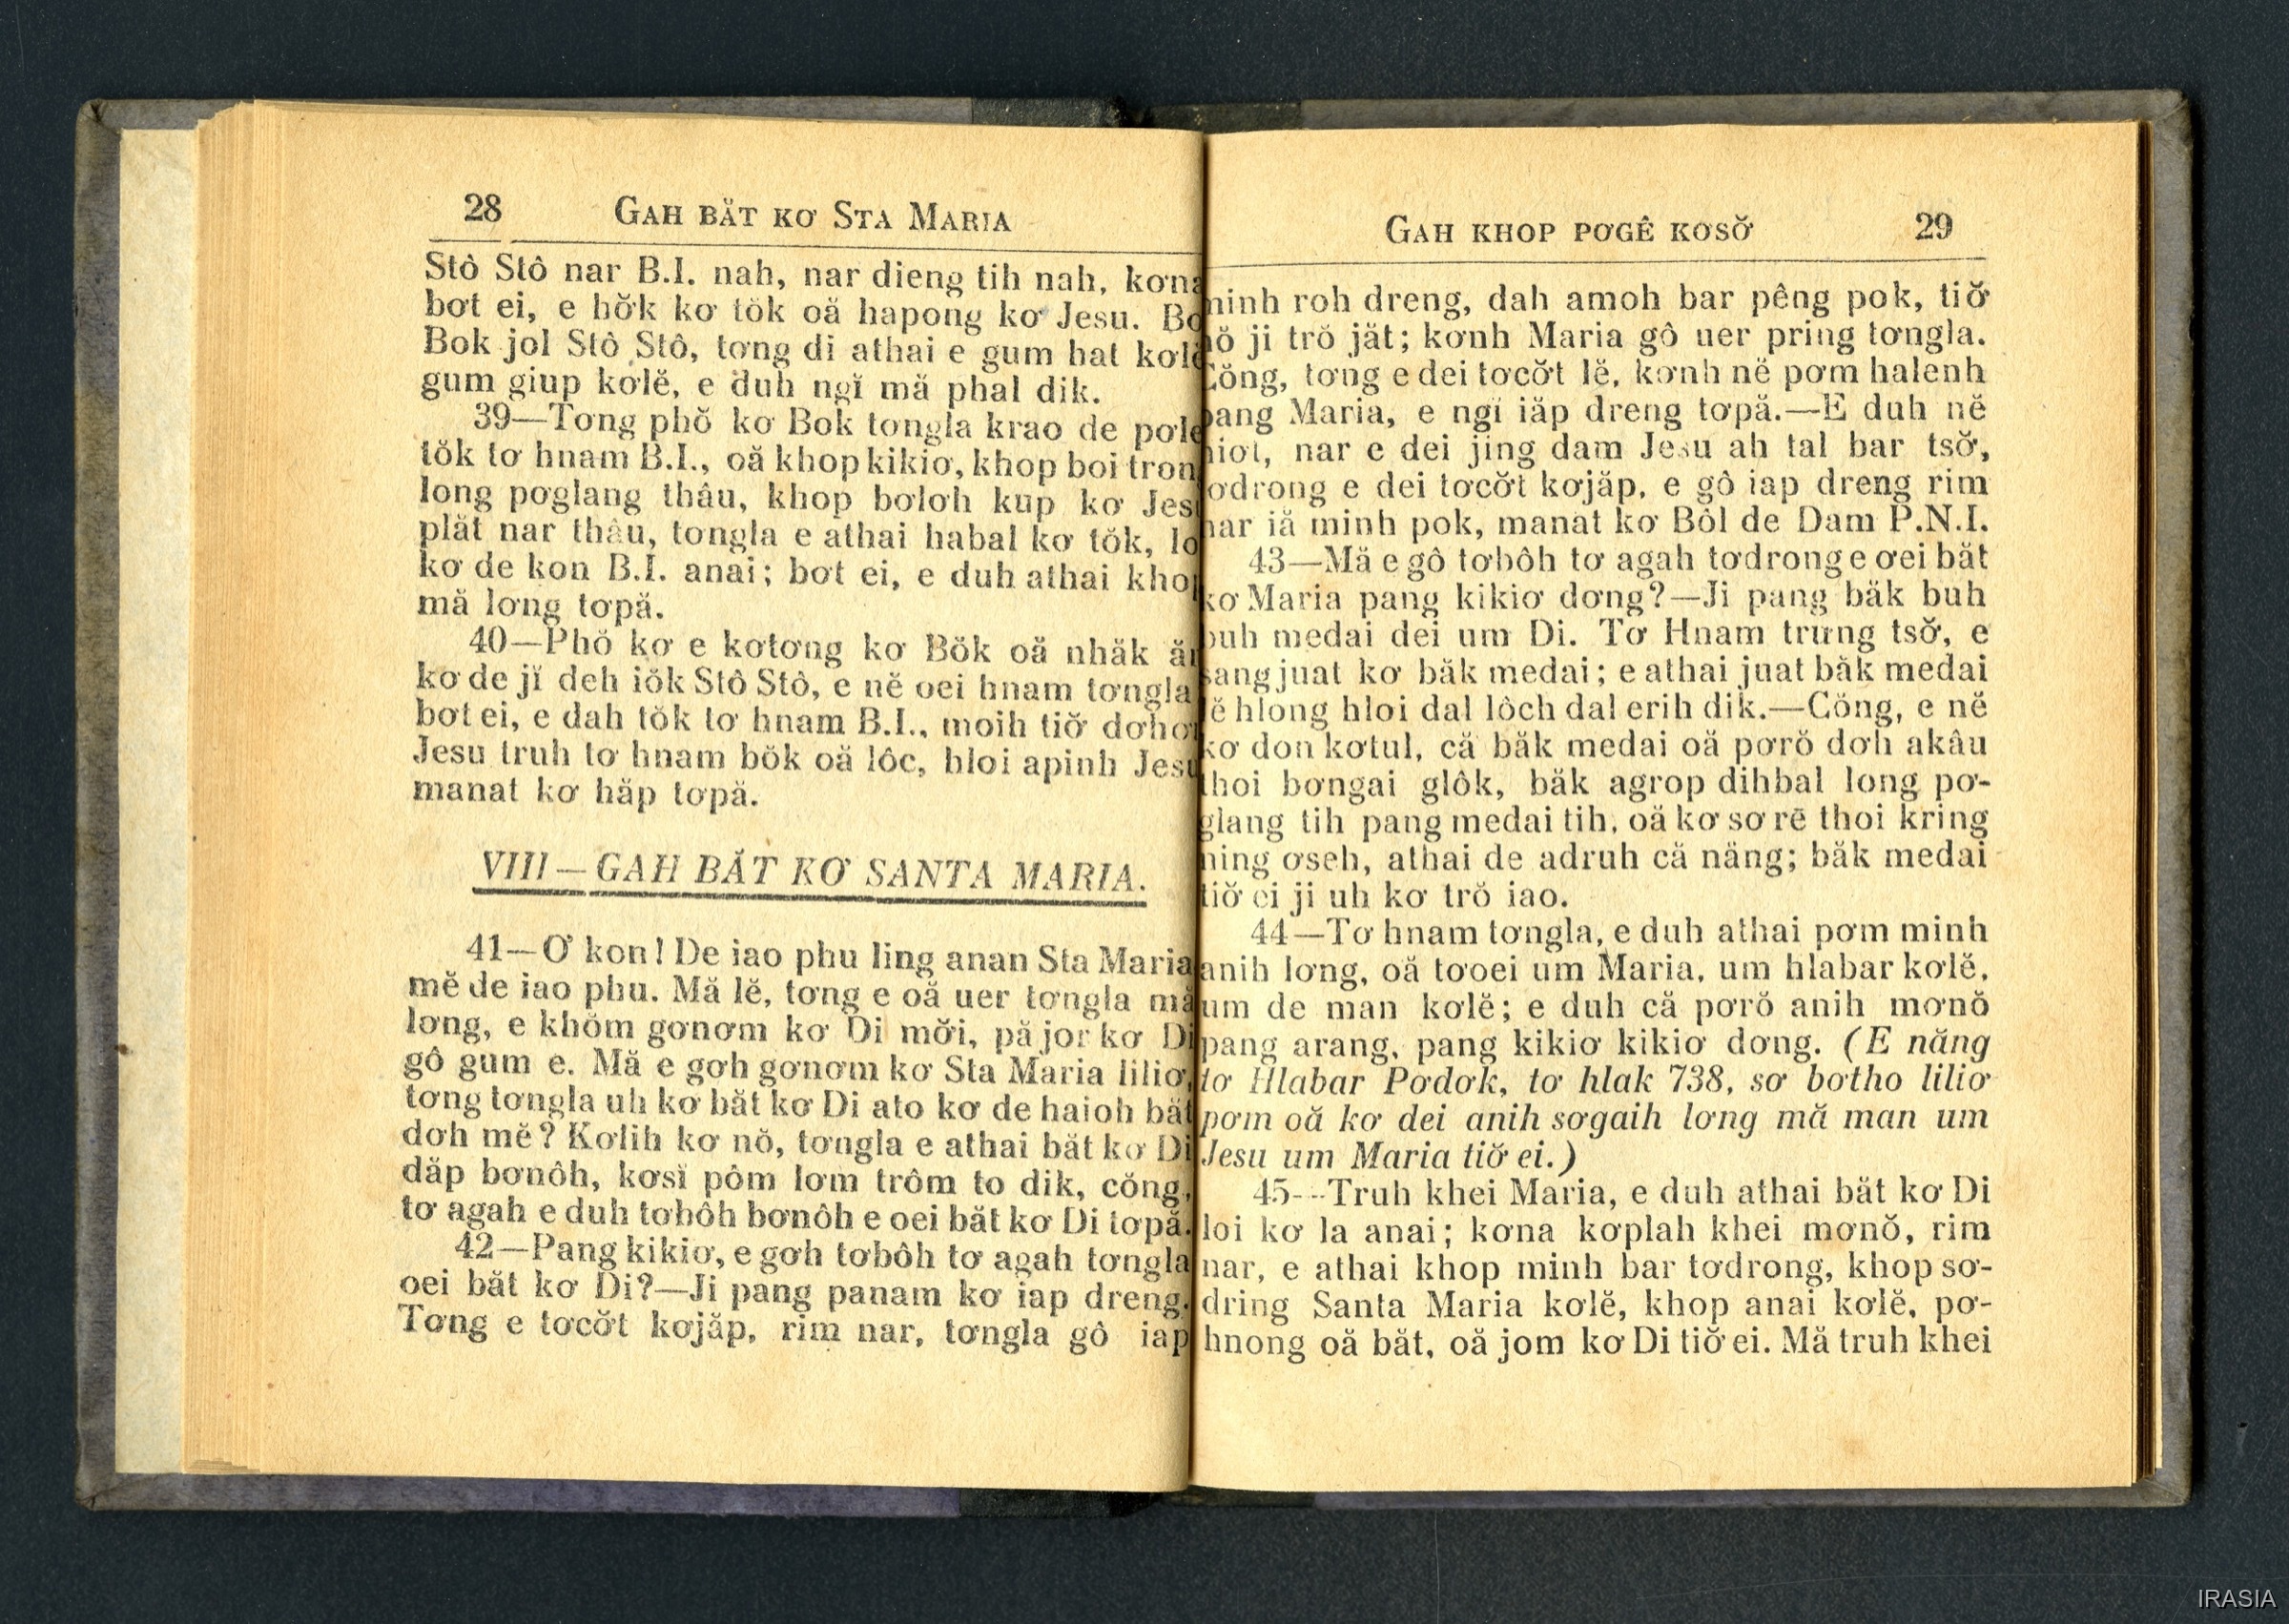 28 GAH BĂT KƠ STA MARIA
Stô Stô nar B.I. nah, nar dieng tih nah,
bơt ei, e hơ̆k kơ tŏk oă hapong kơ Jesu.
Bok jol Stô Stô, tơng di athai e gum hat
gum giup kơlĕ, e duh ngĭ mă phal dik.
39—Tơng phŏ kơ Bok tơngla krao de
tŏk tơ hnam B.I., oă khop kikiơ, khop boi
long pơglang thâu, khop bơlơh kup kơ
plăt nar thâu, tơngla e athai habal kơ tŏk,
kơ de kon B.I. anai; bơt ei, e duh athai
mă lơng tơpă.
40—Phŏ kơ e kơtơng kơ Bŏk oă nhăk
kơ de jĭ deh iŏk Stô Stô, e nĕ oei hnam tơngla
bơt ei, e dah tŏk tơ hnam B.I., moih tiơ̆
Jesu truh tơ hnam bŏk oă lôc, hloi apinh
manat kơ hăp tơpă.
VIII—GAH BĂT KƠ SANTA MARIA.
41—Ơ kon! De iao phu ling anan Sta Maria
mĕ de iao phu. Mă lĕ, tơng e oă uer tơngla mă
lơng, e khŏm gơnơm kơ Di mơ̆i, pă jor kơ Di
gô gum e. Mă e gơh gơnơm kơ Sta Maria liliơ,
tơng tơngla uh kơ băt kơ Di ato kơ de haioh băt
dơh mĕ? Kơlih kơ nŏ, tơngla e athai băt kơ Di
dăp bơnôh, kơsĭ pôm lơm trôm to dik, cŏng,
tơ agah e duh tơbôh bơnôh e oei băt kơ Di tơpă.
42—Pang kikiơ, e gơh tơbôh tơ agah tơngla
oei băt kơ Di?—Ji pang panam kơ iap dreng.
Tơng e tơcơ̆t kơjăp, rim nar, tơngla gô iap
GAH KHOP PƠGÊ KƠSƠ̆ 29
minh roh dreng, dah amoh bar pêng pok, tiơ̆
ji trŏ jăt; kơnh Maria gô uer pring tơngla.
Cŏng, tơng e dei tơcơ̆t lĕ, kơnh nĕ pơm halenh
pang Maria, e ngĭ iăp dreng tơpă.—E duh nĕ
hiơt, nar e dei jing dam Jesu ah tal bar tsơ̆,
tơdrong e dei tơcơ̆t kơjăp, e gô iap dreng rim
nar iă minh pok, manat kơ Bôl de Dam P.N.I.
43—Mă e gô tơbôh tơ agah tơdrong e ơei băt
kơ Maria pang kikiơ dơng?—Ji pang băk buh
buh medai dei um Di. Tơ Hnam trưng tsơ̆, e
sang juat kơ băk medai; e athai juat băk medai
lĕ hlong hloi dal lôch dal erih dik.—Cŏng, e nĕ
kơ don kơtul, că băk medai oă pơrŏ dơh akâu
thoi bơngai glôk, băk agrop dihbal long pơ-
glang tih pang medai tih, oă kơ sơ rĕ thoi kring
ning ơseh, athai de adruh că năng; băk medai
tiơ̆ ei ji uh kơ trŏ iao.
44—Tơ hnam tơngla, e duh athai pơm minh
anih lơng, oă tơoei um Maria, um hlabar kơlĕ,
um de man kơlĕ; e duh că pơrŏ anih mơnŏ
pang arang, pang kikiơ kikiơ dơng. (E năng
tơ Hlabar Pơdơk, tơ hlak 738, sơ bơtho liliơ
pơm oă kơ dei anih sơgaih lơng mă man um
Jesu um Maria tiơ̆ ei.)
45—Truh khei Maria, e duh athai băt kơ Di
loi kơ la anai; kơna kơplah khei mơnŏ, rim
nar, e athai khop minh bar tơdrong, khop sơ-
dring Santa Maria kơlĕ, khop anai kơlĕ, pơ-
hnong oă băt, oă jom kơ Di tiơ̆ ei. Mă truh khei
IRASIA